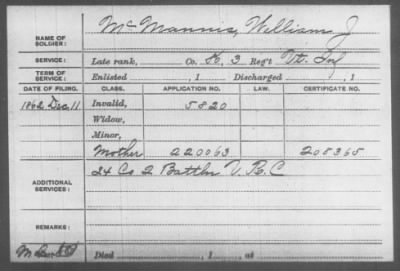 NAME OF SOLDIER: McMannis, William J
SERVICE: Late rank, Co. K, 3 Reg't Vt. Inf
TERM OF SERVICE: Enlisted , 1 Discharged , 1
DATE OF FILING. CLASS. APPLICATION NO. LAW. CERTIFICATE NO.
1862 Dec. 11 Invalid, 5820
Widow,
Minor,
Mother 220063 208365
ADDITIONAL SERVICES: 24 Co 2 Battln V.R.C
REMARKS:
Died , 1 , at